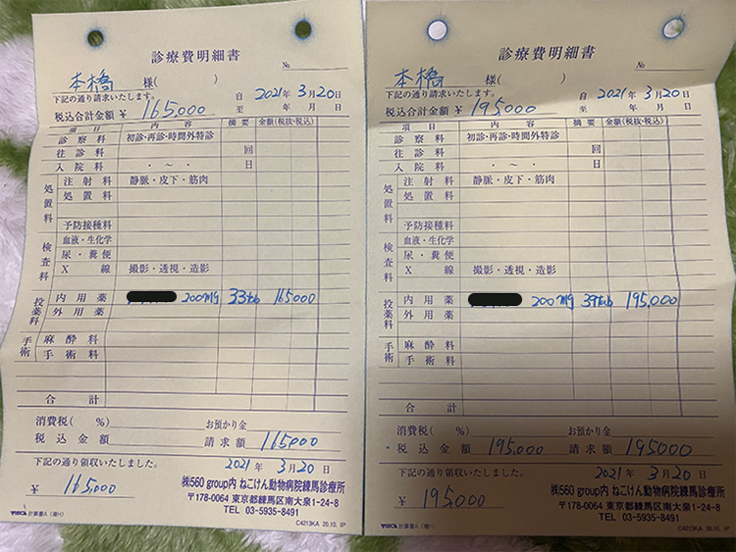 診療費明細書
№
本橋 様( )
下記の通り請求いたします。
自 2021年 3月20日
税込合計金額 ¥ 165,000
至 年 月 日
項目 内容 摘要 金額(税抜・税込)
診察料 初診・再診・時間外特診
往診料 回
入院料 ・ ～ ・ 日
処置料
注射料 静脈・皮下・筋肉
処置料
予防接種料
検査料
血液・生化学
尿・糞便
X線 撮影・透視・造影
投薬料
内用薬 200mg 33tab 165000
外用薬
手術
麻酔料
手術料
合計
消費税( %) お預かり金
税込金額 請求額 165000
下記の通り領収いたしました。
2021年 3月20日
¥ 165,000
㈱560 group内 ねこけん動物病院練馬診療所
〒178-0064 東京都練馬区南大泉1-24-8
TEL 03-5935-8491
計算書A(箱H)
C4213KA 20.10. IP
診療費明細書
№
本橋 様( )
下記の通り請求いたします。
自 2021年 3月20日
税込合計金額 ¥ 195,000
至 年 月 日
項目 内容 摘要 金額(税抜・税込)
診察料 初診・再診・時間外特診
往診料 回
入院料 ・ ～ ・ 日
処置料
注射料 静脈・皮下・筋肉
処置料
予防接種料
検査料
血液・生化学
尿・糞便
X線 撮影・透視・造影
投薬料
内用薬 200mg 39tab 195,000
外用薬
手術
麻酔料
手術料
合計
消費税( %) お預かり金
税込金額 195,000 請求額 195000
下記の通り領収いたしました。
2021年 3月20日
¥ 195,000
㈱560 group内 ねこけん動物病院練馬診療所
〒178-0064 東京都練馬区南大泉1-24-8
TEL 03-5935-8491
計算書A(箱H)
C4213KA 20.10. IP